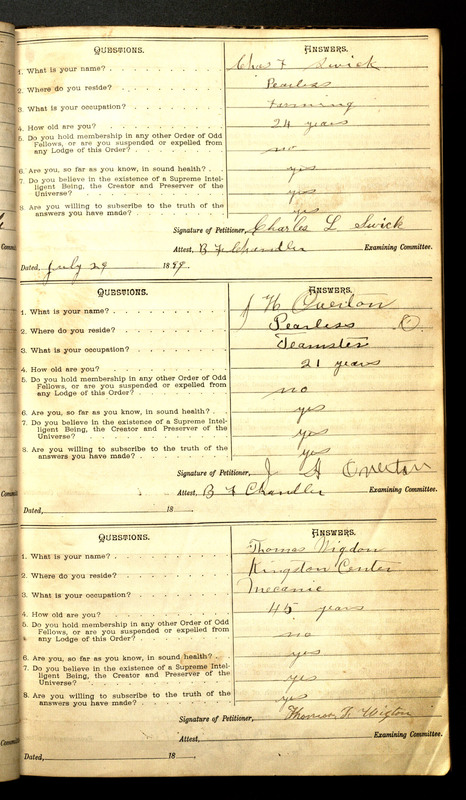 QUESTIONS. ANSWERS.
1. What is your name? Chas F Swick
2. Where do you reside? Pearless
3. What is your occupation? Farming
4. How old are you? 24 years
5. Do you hold membership in any other Order of Odd
Fellows, or are you suspended or expelled from
any Lodge of this Order? no
6. Are you, so far as you know, in sound health? yes
7. Do you believe in the existence of a Supreme Intel-
ligent Being, the Creator and Preserver of the
Universe? yes
8. Are you willing to subscribe to the truth of the
answers you have made? yes
Signature of Petitioner, Charles L Swick
Attest, B F Chandler Examining Committee.
Dated, July 29 1899.
QUESTIONS. ANSWERS.
1. What is your name? J H Overton
2. Where do you reside? Pearless O.
3. What is your occupation? Teamster
4. How old are you? 21 years
5. Do you hold membership in any other Order of Odd
Fellows, or are you suspended or expelled from
any Lodge of this Order? no
6. Are you, so far as you know, in sound health? yes
7. Do you believe in the existence of a Supreme Intel-
ligent Being, the Creator and Preserver of the
Universe? yes
8. Are you willing to subscribe to the truth of the
answers you have made? yes
Signature of Petitioner, J H Overton
Attest, B F Chandler Examining Committee.
Dated, 18
QUESTIONS. ANSWERS.
1. What is your name? Thomas Wigdon
2. Where do you reside? Kingdon Center
3. What is your occupation? Mecanic
4. How old are you? 45 years
5. Do you hold membership in any other Order of Odd
Fellows, or are you suspended or expelled from
any Lodge of this Order? no
6. Are you, so far as you know, in sound health? yes
7. Do you believe in the existence of a Supreme Intel-
ligent Being, the Creator and Preserver of the
Universe? yes
8. Are you willing to subscribe to the truth of the
answers you have made? yes
Signature of Petitioner, Thomas T. Wigton
Attest, Examining Committee.
Dated, 18